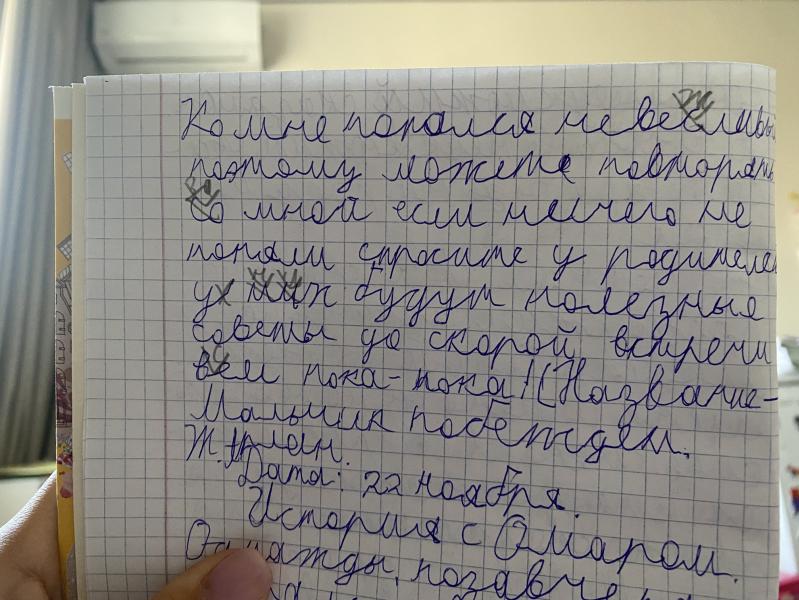 Ко мне попался невежливы
поэтому можете повторять
со мной если ничего не
поняли спросите у родителе
у них будут полезные
советы до скорой встречи
всем пока-пока! (Название-
Мальчик победьдем.
Дата: 22 ноября.
История с Омаром.
Однажды, позавче